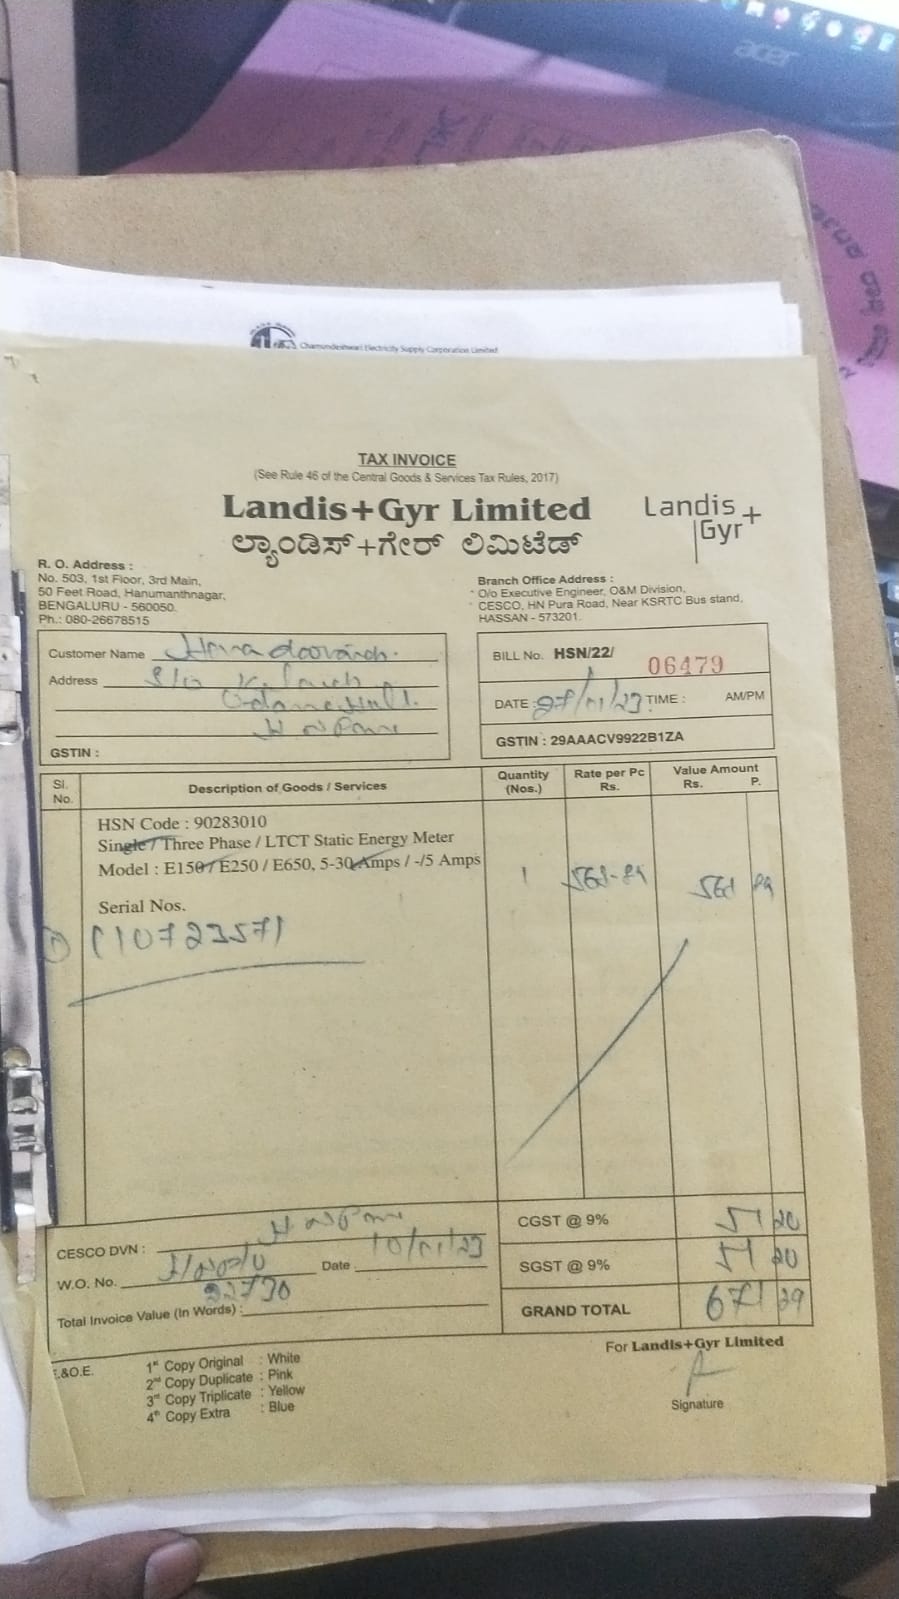 acer
Chamundeshwari Electricity Supply Corporation Limited
TAX INVOICE
(See Rule 46 of the Central Goods & Services Tax Rules, 2017)
Landis+Gyr Limited
ಲ್ಯಾಂಡಿಸ್+ಗೇರ್ ಲಿಮಿಟೆಡ್
Landis+
Gyr
R. O. Address :
No. 503, 1st Floor, 3rd Main,
50 Feet Road, Hanumanthnagar,
BENGALURU - 560050.
Ph.: 080-26678515
Branch Office Address :
O/o Executive Engineer, O&M Division,
CESCO, HN Pura Road, Near KSRTC Bus stand,
HASSAN - 573201.
Customer Name
Address S/o
GSTIN :
BILL No. HSN/22/ 06479
DATE : 27/01/23 TIME : AM/PM
GSTIN : 29AAACV9922B1ZA
Sl. No. Description of Goods / Services Quantity (Nos.) Rate per Pc Rs. Value Amount Rs. P.
HSN Code : 90283010
Single / Three Phase / LTCT Static Energy Meter
Model : E150 / E250 / E650, 5-30 Amps / -/5 Amps 1
Serial Nos.
1 110723571
CGST @ 9% 51 20
CESCO DVN :
SGST @ 9% 51 20
W.O. No. 22730 Date 10/01/23
Total Invoice Value (In Words) :
GRAND TOTAL 671 29
For Landis+Gyr Limited
E.&O.E.
1st Copy Original : White
2nd Copy Duplicate : Pink
3rd Copy Triplicate : Yellow
4th Copy Extra : Blue
Signature